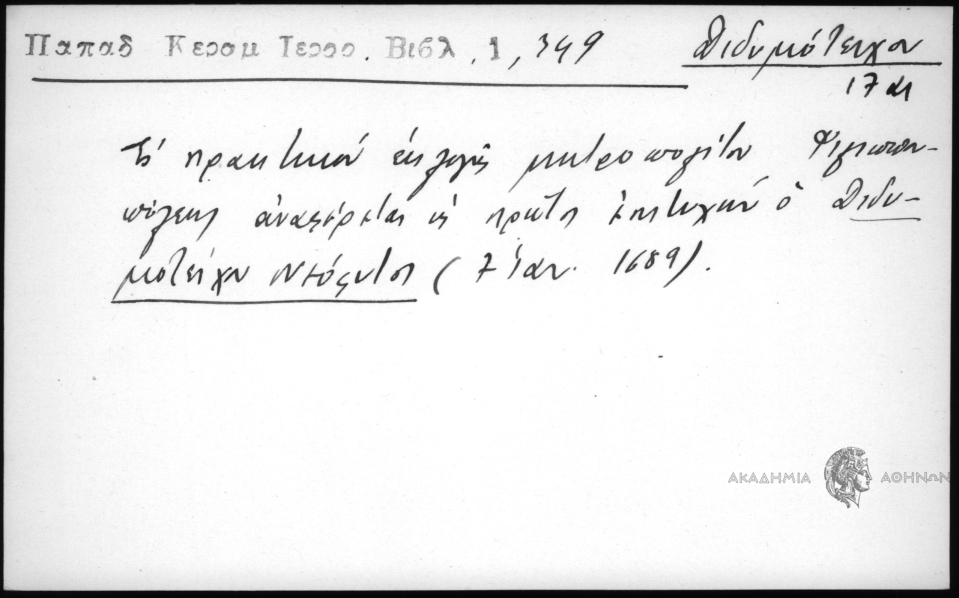 Παπαδ Κερσμ Ιερσο. Βιβλ. 1, 349
Διδυμότειχον
17 αι
Εἰς πρακτικόν ἐκλογῆς μητροπολίτου Φιλιππου-
πόλεως ἀναφέρεται ὡς πρῶτος ὁ Διδυ-
μοτείχου (7 Ἰαν. 1689).
ΑΚΑΔΗΜΙΑ ΑΘΗΝΩΝ